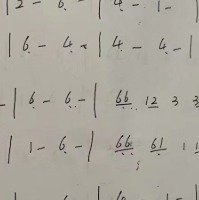 | 2 - 6 - | 4 - 1 - |
| 6 - 4 - | 4 - 4 - |
- | 6 - 6 - | 66 12 3 3
| 1 - 6 - | 66 61 1 1